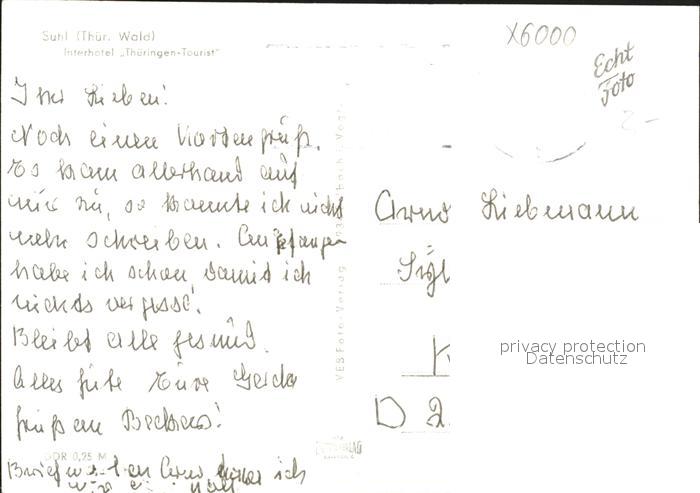 Suhl (Thür. Wald)
Interhotel „Thüringen-Tourist"
X6000
Echt
Foto
2-
Ihr Lieben!
Noch einen Kartengruß.
Es kam allerhand auf
mir zu, so konnte ich nicht
mehr schreiben. Angefangen
habe ich schon, damit ich
nichts vergesse!
Bleibt alle gesund.
Alles gute Eure Gerda
gruß an Beckers!
DDR 0,25 M
Arno ich
VEB Foto-Verlag
Arno Liebmann
privacy protection
Datenschutz
D 2